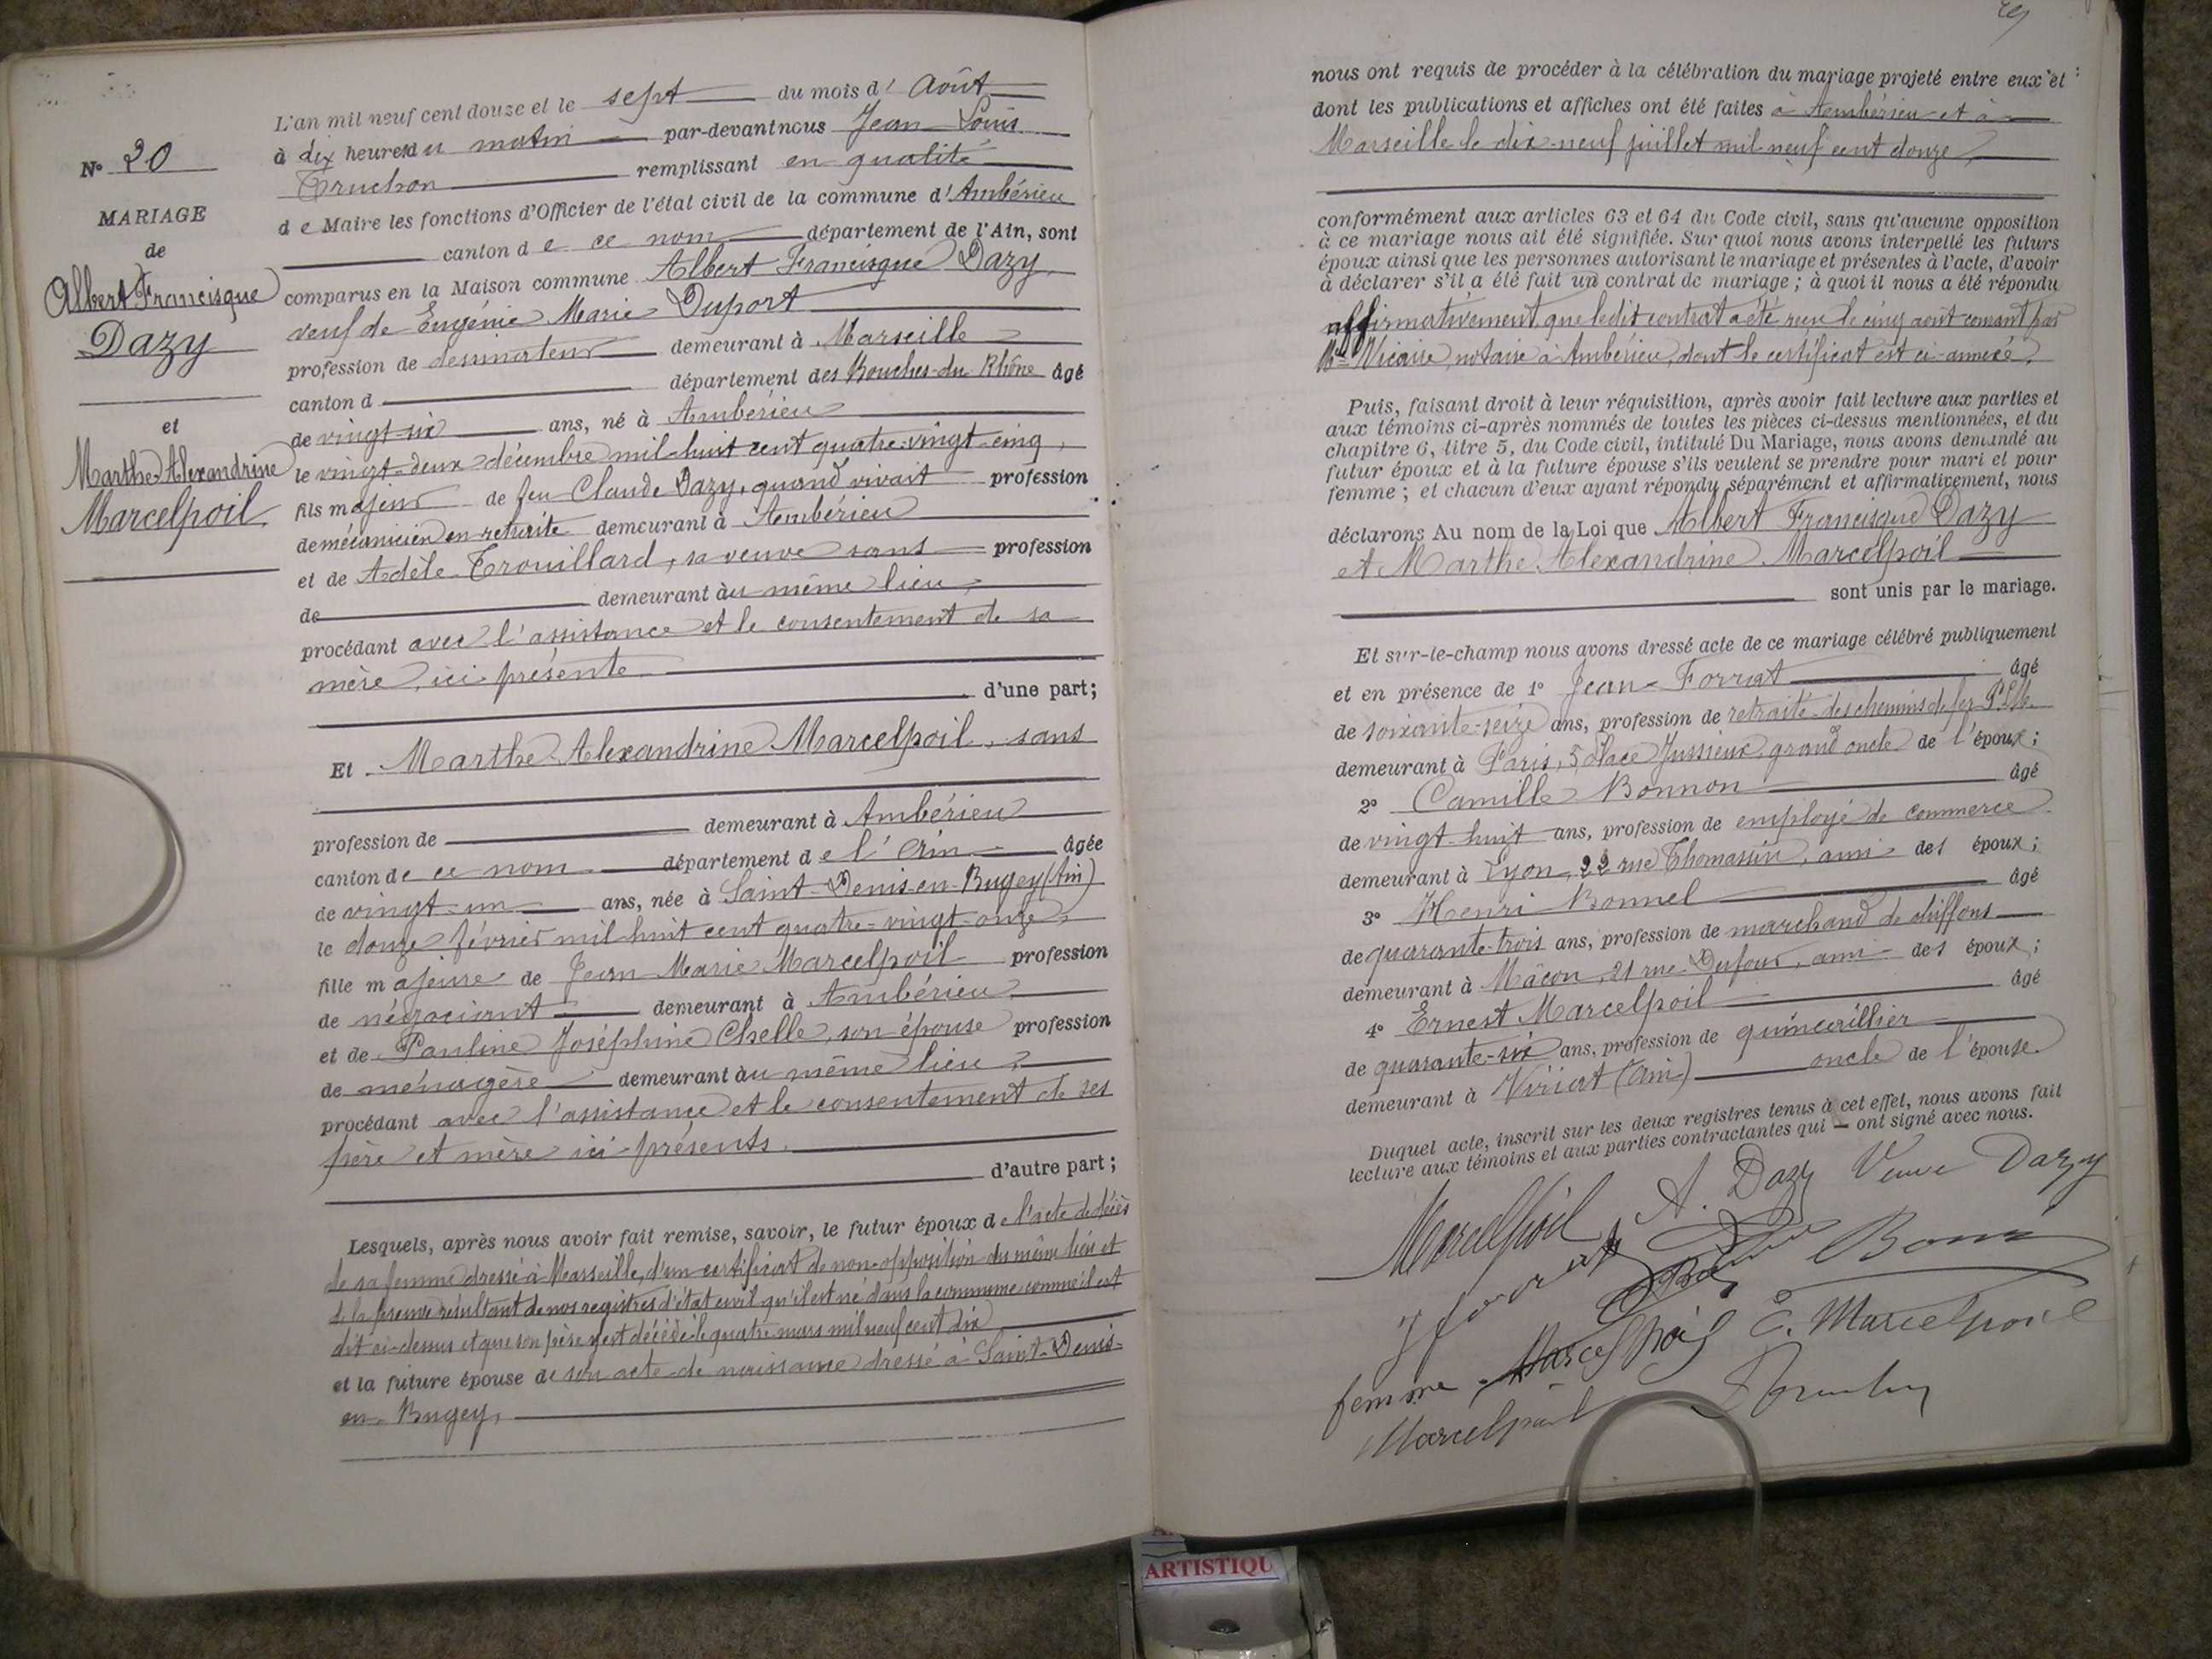 N° 20
MARIAGE
de
Albert Francisque
Dazy
et
Marthe Alexandrine
Marcelpoil
L'an mil neuf cent douze et le sept du mois d' Août
à dix heures du matin par-devant nous Jean Louis
Truchon remplissant en qualité
de Maire les fonctions d'Officier de l'état civil de la commune d'Ambérieu
canton de ce nom département de l'Ain, sont
comparus en la Maison commune Albert Francisque Dazy,
veuf de Eugénie Marie Duport
profession de dessinateur demeurant à Marseille
canton d département des Bouches-du-Rhône âgé
de vingt-six ans, né à Ambérieu
le vingt-deux décembre mil-huit cent quatre-vingt-cinq,
fils majeur de feu Claude Dazy, quand vivait profession
de mécanicien en retraite demeurant à Ambérieu
et de Adèle Trouillard, sa veuve sans profession
de demeurant au même lieu,
procédant avec l'assistance et le consentement de sa
mère, ici présente
d'une part;
Et Marthe Alexandrine Marcelpoil, sans
profession de demeurant à Ambérieu
canton de ce nom département de l'Ain âgée
de vingt-un ans, née à Saint-Denis-en-Bugey (Ain)
le douze février mil-huit cent quatre-vingt-onze,
fille majeure de Jean Marie Marcelpoil profession
de négociant demeurant à Ambérieu
et de Pauline Joséphine Chelle, son épouse profession
de ménagère demeurant au même lieu,
procédant avec l'assistance et le consentement de ses
père et mère ici présents.
d'autre part;
Lesquels, après nous avoir fait remise, savoir, le futur époux de l'acte de décès
de sa femme dressé à Marseille, d'un certificat de non-opposition du même lieu et
de la preuve résultant de nos registres d'état civil qu'il est né dans la commune comme il est
dit ci-dessus et que son père y est décédé le quatre mars mil neuf cent dix
et la future épouse de son acte de naissance dressé à Saint-Denis-
en-Bugey,
nous ont requis de procéder à la célébration du mariage projeté entre eux et
dont les publications et affiches ont été faites à Ambérieu et à
Marseille le dix-neuf juillet mil neuf cent douze,
conformément aux articles 63 et 64 du Code civil, sans qu'aucune opposition
à ce mariage nous ait été signifiée. Sur quoi nous avons interpellé les futurs
époux ainsi que les personnes autorisant le mariage et présentes à l'acte, d'avoir
à déclarer s'il a été fait un contrat de mariage; à quoi il nous a été répondu
affirmativement, que ledit contrat a été reçu le cinq août courant par
Me Vicaire, notaire à Ambérieu, dont le certificat est ci-annexé.
Puis, faisant droit à leur réquisition, après avoir fait lecture aux parties et
aux témoins ci-après nommés de toutes les pièces ci-dessus mentionnées, et du
chapitre 6, titre 5, du Code civil, intitulé Du Mariage, nous avons demandé au
futur époux et à la future épouse s'ils veulent se prendre pour mari et pour
femme; et chacun d'eux ayant répondu séparément et affirmativement, nous
déclarons Au nom de la Loi que Albert Francisque Dazy
et Marthe Alexandrine Marcelpoil
sont unis par le mariage.
Et sur-le-champ nous avons dressé acte de ce mariage célébré publiquement
et en présence de 1° Jean Forrat âgé
de soixante-seize ans, profession de retraité des chemins de fer P.L.M.
demeurant à Paris, 5, place Jussieux, grand oncle de l'époux;
2° Camille Bonnon âgé
de vingt-huit ans, profession de employé de commerce
demeurant à Lyon, 22 rue Thomassin, ami des époux;
3° Henri Bonnel âgé
de quarante-trois ans, profession de marchand de chiffons
demeurant à Mâcon, 21 rue Dufour, ami des époux;
4° Ernest Marcelpoil âgé
de quarante-six ans, profession de quincaillier
demeurant à Viriat (Ain) oncle de l'épouse.
Duquel acte, inscrit sur les deux registres tenus à cet effet, nous avons fait
lecture aux témoins et aux parties contractantes qui — ont signé avec nous.
Marcelpoil A. Dazy Veuve Dazy
J forrat
femme Marcelpoil E. Marcelpoil
Marcelpoil Truchon
ARTISTIQU